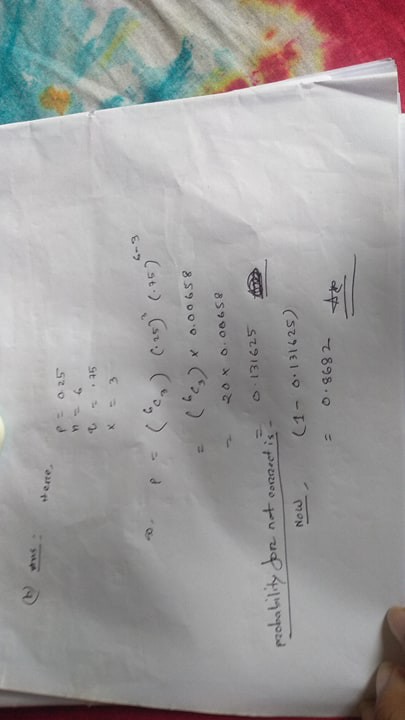 (b) Ans: Here,
p = 0.25
n = 6
q = .75
x = 3
P = (⁶C₃) (.25)³ (.75)⁶⁻³
= (⁶C₃) × 0.00658
= 20 × 0.00658
= 0.131625
probability for not correct is -
Now, (1 - 0.131625)
= 0.8682